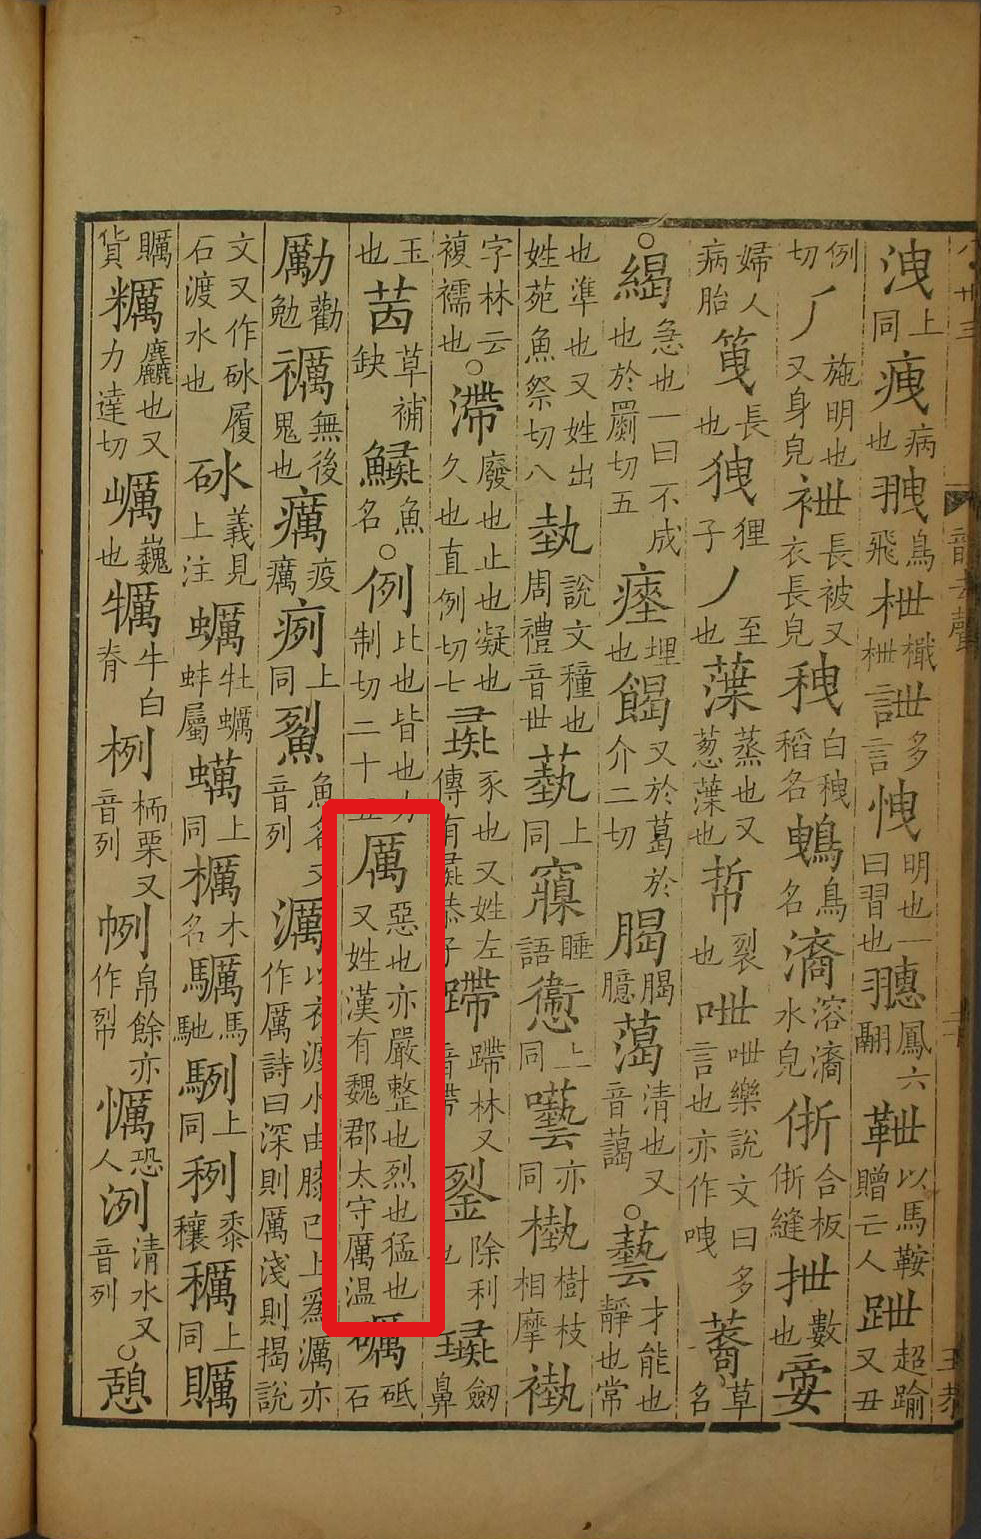 韻去聲
洩上同疶病也䎈鳥飛枻檝枻詍多言怈明也一曰習也鳳六翮靾以馬鞍贈亡人跇超踰又丑
例切施明也又身皃袣長被又衣長皃白稻名鳥名溶水皃合板縫抴數也
婦人病胎長也狸子丿至也蒸也又葱也裂也呭呭樂說文曰多言也亦作草名
○急也一曰不成也於罽切五瘞埋也餲又於葛於介二切臆清也又音藹○藝才能也靜也常
也準也又姓出姓苑魚祭切八埶說文種也周禮音世蓺上同寱睡語上同囈亦同槸樹枝相摩褹
字林云複襦也○滯廢也止也凝也久也直例切七彘豕也又姓左傳有彘恭子蹛蹛林又音帶銐除利也璏劒鼻
玉也茵草補缺魚名○例比也皆也力制切二十五厲惡也亦嚴整也烈也猛也又姓漢有魏郡太守厲温礪砥石
勵勸勉禲無後鬼也癘疫癘上同鮤魚名又音列濿以衣渡水由膝已上爲濿亦作厲詩曰深則厲淺則揭說
文又作砅履石渡水也砅義見上注蠣牡蠣蚌屬上同櫔木名馬馳上同黍穰上同矋
矋貨糲麤也又力達切巁巍也犡牛白脊栵栭栗又音列帛餘亦作恐人洌清水又音列○憩